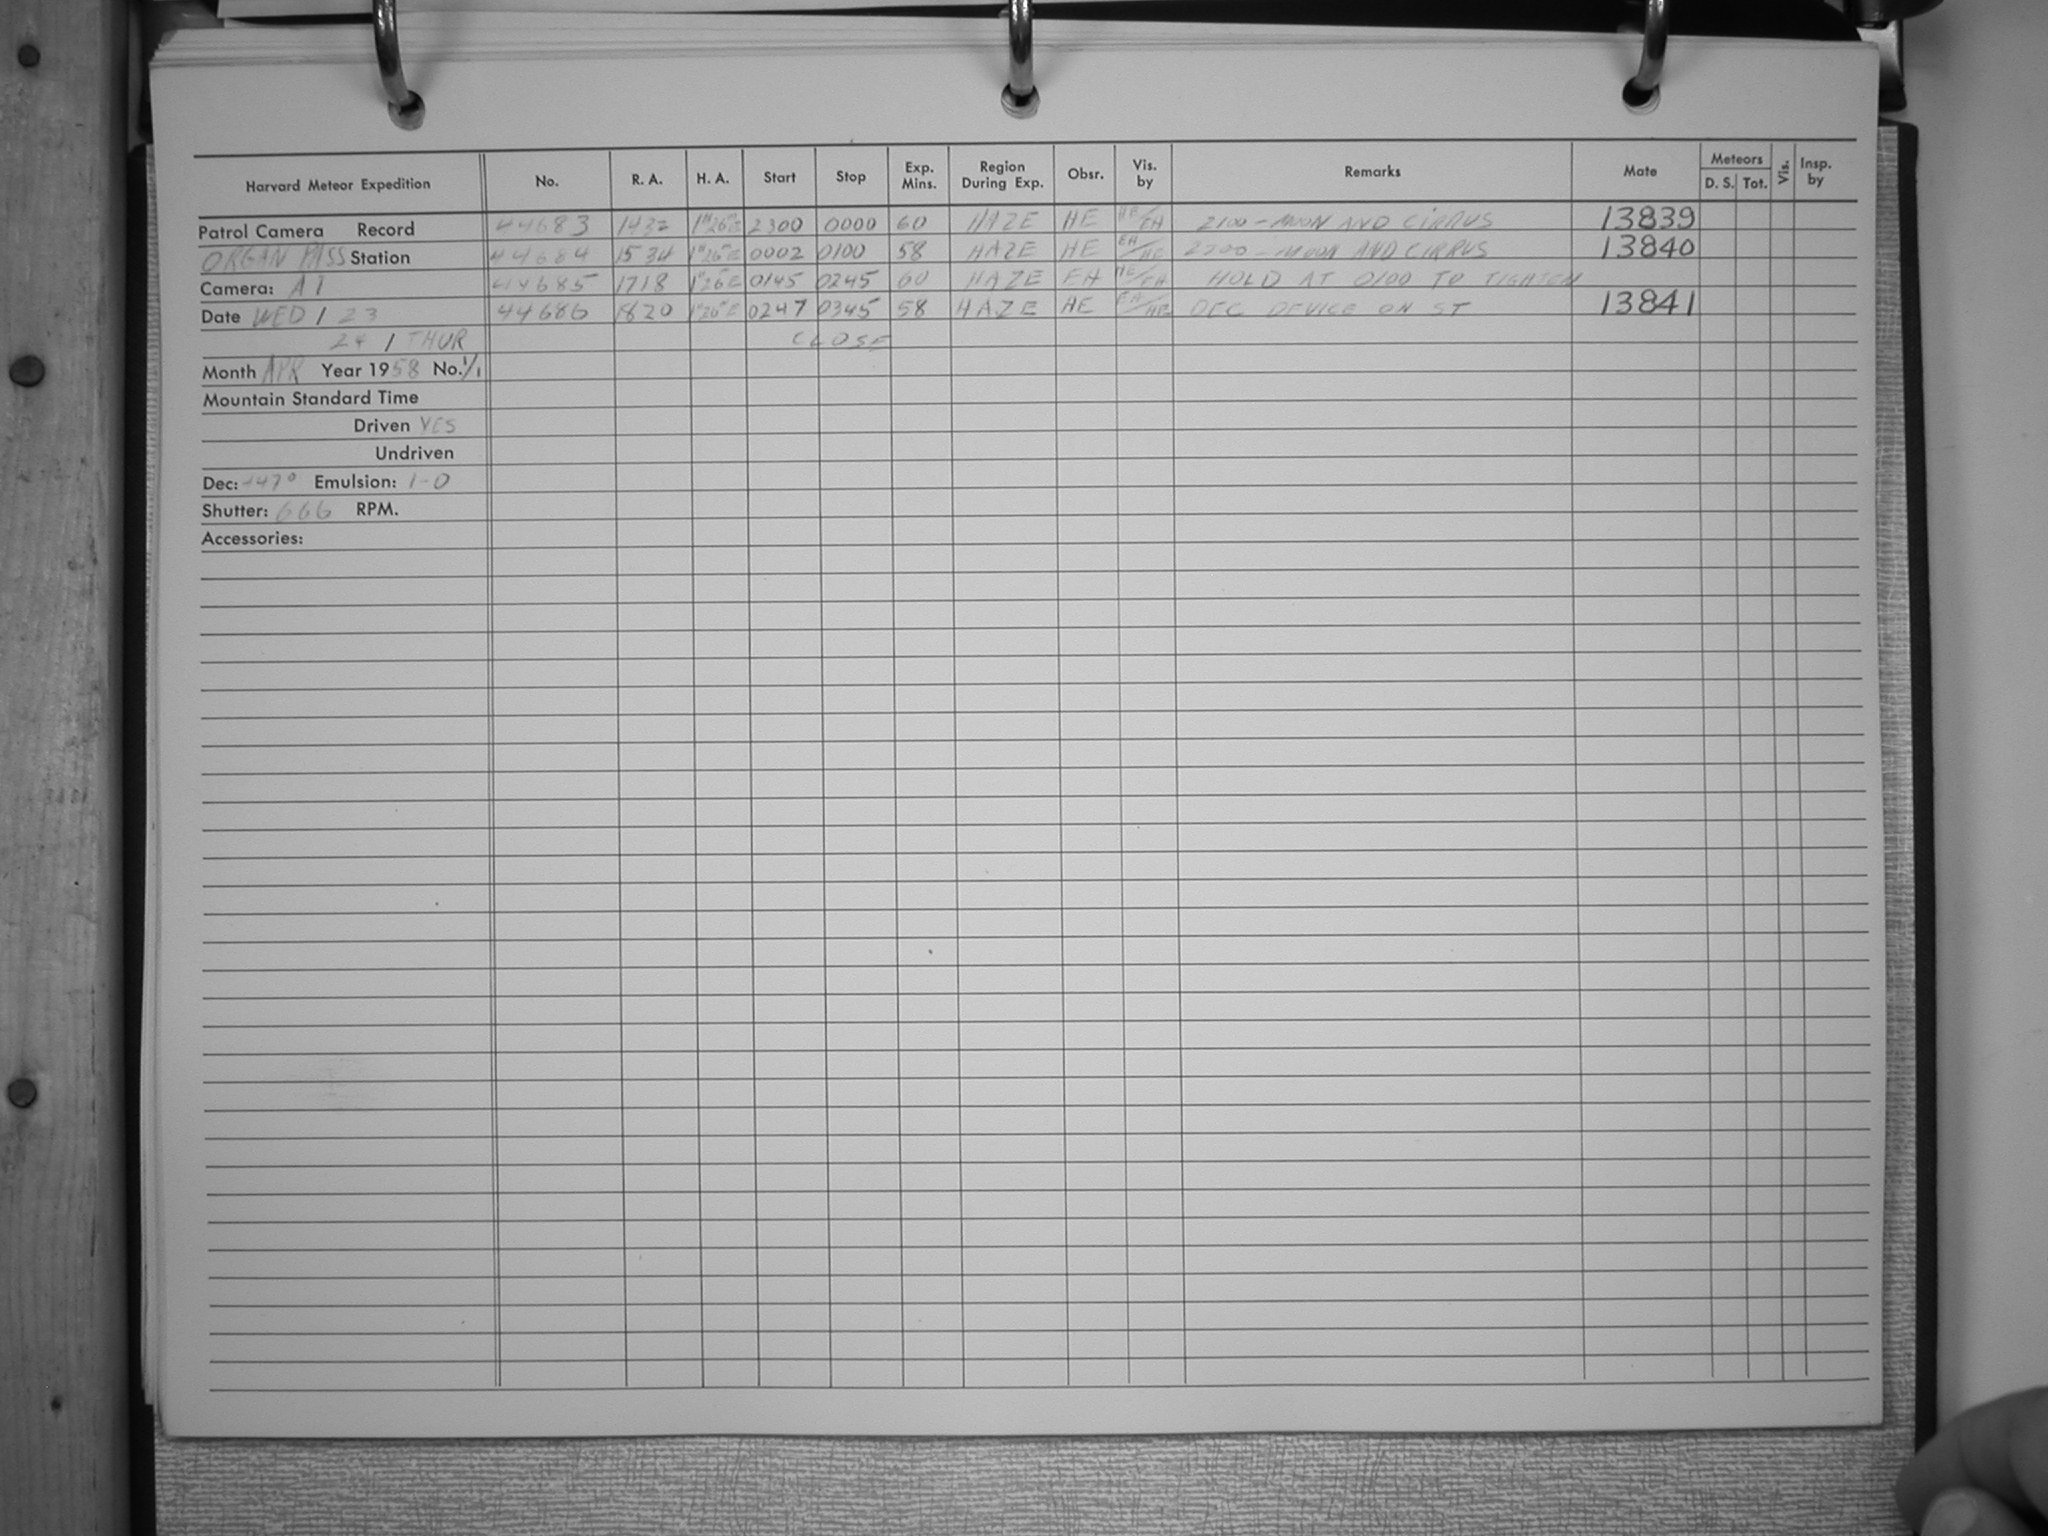 Harvard Meteor Expedition No. R. A. H. A. Start Stop Exp. Mins. Region During Exp. Obsr. Vis. by Remarks Mate Meteors D. S. Tot. Vis. Insp. by
Patrol Camera Record 44683 1432 1H26mE 2300 0000 60 HAZE HE HE/EH 2100 - MOON AND CIRRUS 13839
ORGAN PASS Station 44684 1534 1H26mE 0002 0100 58 HAZE HE EH/HE 2200 - MOON AND CIRRUS 13840
Camera: A1 44685 1718 1H26E 0145 0245 60 HAZE EH HE/EH HOLD AT 0100 TO TIGHTEN
Date WED / 23 44686 1820 1H26E 0247 0345 58 HAZE HE EH/HE DEC DEVICE ON ST 13841
24 / THUR CLOSE
Month APR Year 1958 No. 1/1
Mountain Standard Time
Driven YES
Undriven
Dec: +47° Emulsion: 1-0
Shutter: 666 RPM.
Accessories: